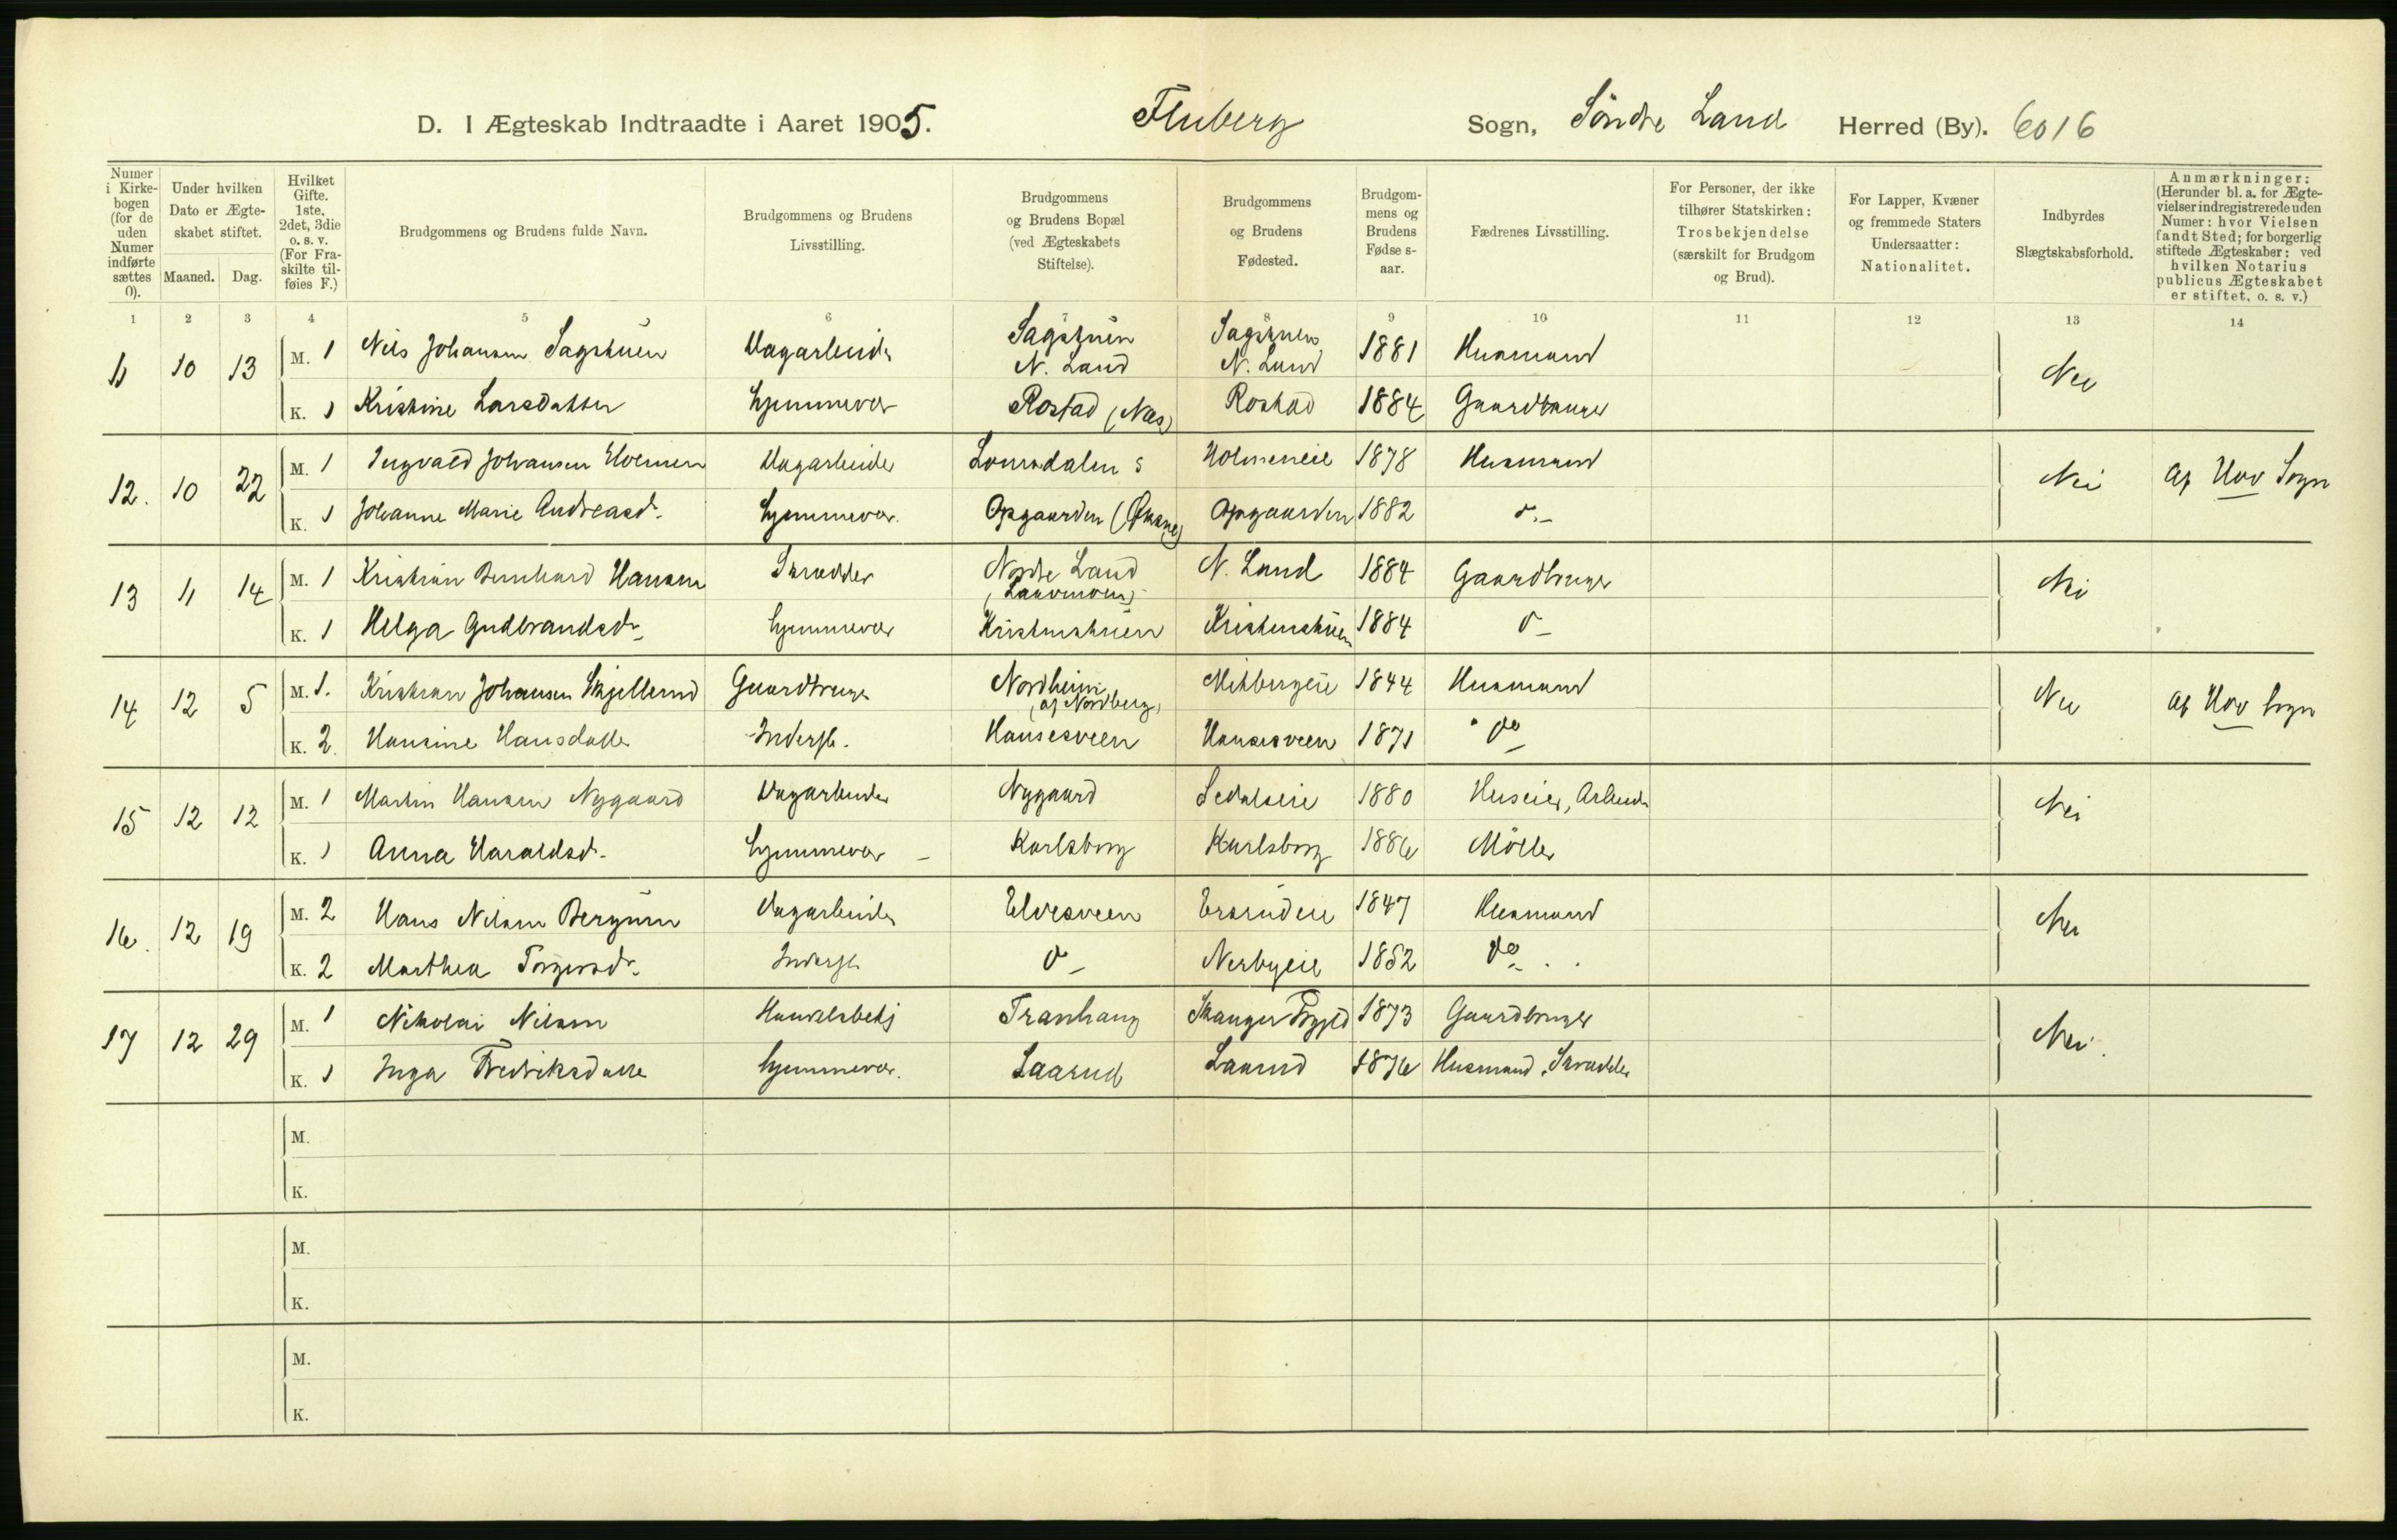 D. I Ægteskab Indtraadte i Aaret 1905. Fluberg Sogn, Söndre Land Herred (By). 6016
Numer i Kirkebogen (for de uden Numer indførte sættes 0).
Under hvilken Dato er Ægteskabet stiftet.
Maaned. Dag.
Hvilket Gifte. 1ste, 2det, 3die o. s. v. (For Fraskilte tilføies F.)
Brudgommens og Brudens fulde Navn.
Brudgommens og Brudens Livsstilling.
Brudgommens og Brudens Bopæl (ved Ægteskabets Stiftelse).
Brudgommens og Brudens Fødested.
Brudgommens og Brudens Fødselsaar.
Fædrenes Livsstilling.
For Personer, der ikke tilhører Statskirken: Trosbekjendelse (særskilt for Brudgom og Brud).
For Lapper, Kvæner og fremmede Staters Undersaatter: Nationalitet.
Indbyrdes Slægtskabsforhold.
Anmærkninger: (Herunder bl. a. for Ægtevielser indregistrerede uden Numer: hvor Vielsen fandt Sted; for borgerlig stiftede Ægteskaber: ved hvilken Notarius publicus Ægteskabet er stiftet, o. s. v.)
1 2 3 4 5 6 7 8 9 10 11 12 13 14
11 10 13 M. 1 Nils Johansen Sagstuen Dagarbeider Sagstuen N. Land Sagstuen N. Land 1881 Husmand Nei
K. 1 Kristine Larsdatter hjemmevær Rostad (Næs) Rostad 1884 Gaardbruger
12. 10 22 M. 1 Ingvald Johansen Holmen Dagarbeider Holmeneie 1878 Husmand Nei Af Hov Sogn
K. 1 Johanne Marie Andreasd. hjemmevær. Opgaarden Opgaarden 1882 d.-
13 11 14 M. 1 Kristian Bernhard Hansen Skrædder Nordre Land (Landmoen) N. Land 1884 Gaardbruger Nei
K. 1 Helga Gudbrandsd. hjemmevær Kristinstuen Kristinstuen 1884 d-
14 12 5 M. 1. Kristian Johansen Skjellerud Gaardbruger Nordheim (af Nordberg) 1844 Husmand Nei Af Hov Sogn
K. 2. Hansine Hansdatter Inderst. Hansesveen Hansesveen 1871 do
15 12 12 M. 1 Martin Hansen Nygaard Dagarbeider Nygaard 1880 Huseier, Arbeider Nei
K. 1 Anna Haraldsd. hjemmevær - Karlsborg Karlsborg 1886 Möller
16. 12 19 M. 2 Hans Nilsen Dagarbeider Elvesveen 1847 Husmand Nei
K. 2 Marthea Torgersd. Inderst d- Nerbyeie 1852 do
17 12 29 M. 1 Nikolai Nilsen Handelsbetj Tranhaug 1873 Gaardbruger Nei.
K. 1 Inga Fredriksdatte hjemmevær. Laarud Laarud 1876 Husmand, Skrædder
M.
K.
M.
K.
M.
K.